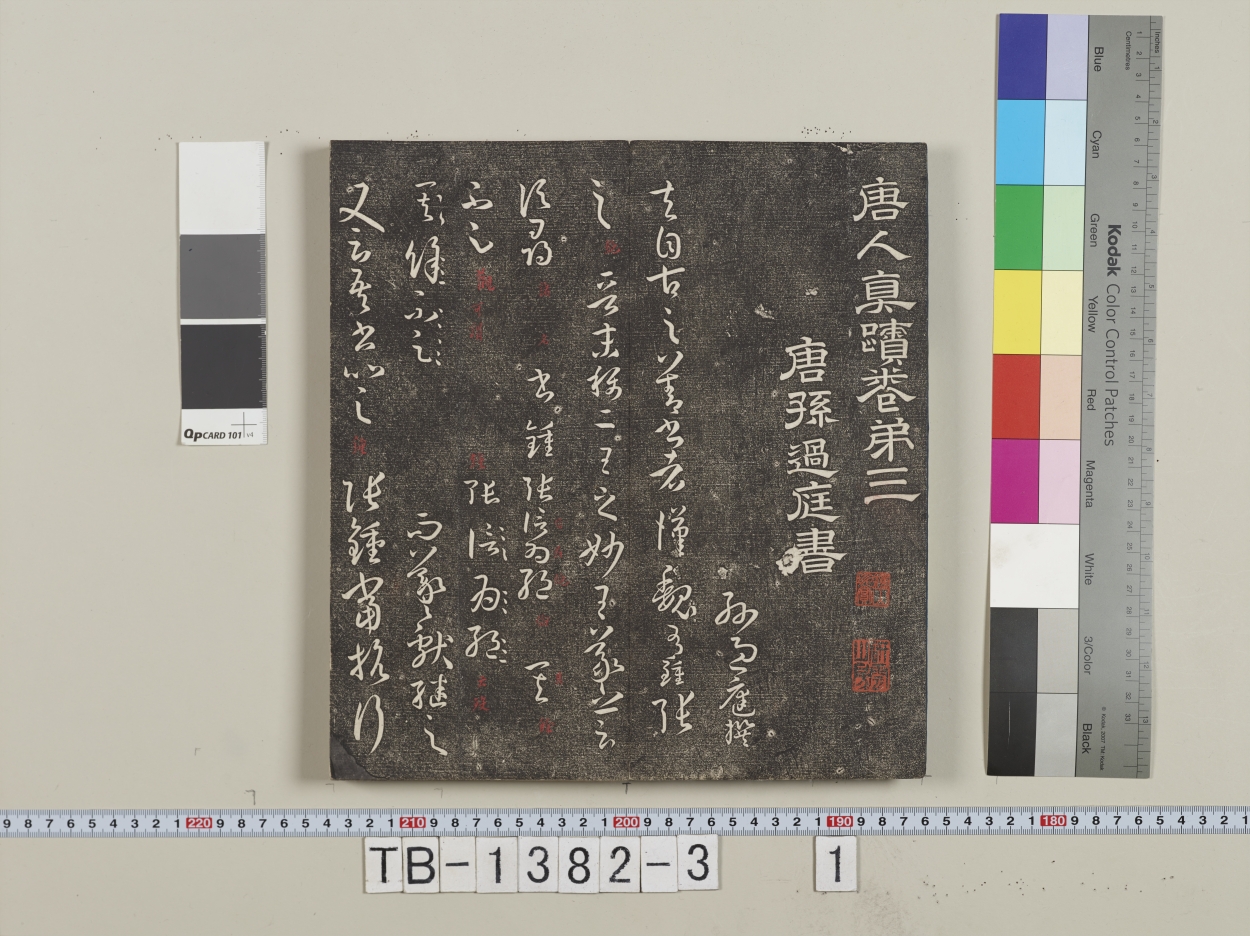 唐人真蹟卷弟三
唐孫過庭書
孫過庭撰
夫自古之善書者漢魏有鍾張
之 晉末稱二王之妙王羲之云
頃尋 書鍾張信為絕 其
不足 張信為絕
其餘不足 而羲獻繼之
又云吾書比之 張鍾當抗行
QPCARD 101 v4
Kodak Color Control Patches
Blue
Cyan
Green
Yellow
Red
Magenta
White
3/Color
Black
Inches
Centimetres
9 8 7 6 5 4 3 2 1 220 9 8 7 6 5 4 3 2 1 210 9 8 7 6 5 4 3 2 1 200 9 8 7 6 5 4 3 2 1 190 9 8 7 6 5 4 3 2 1 180 9 8 7 6 5 4 3 2 1
TB-1382-3 1